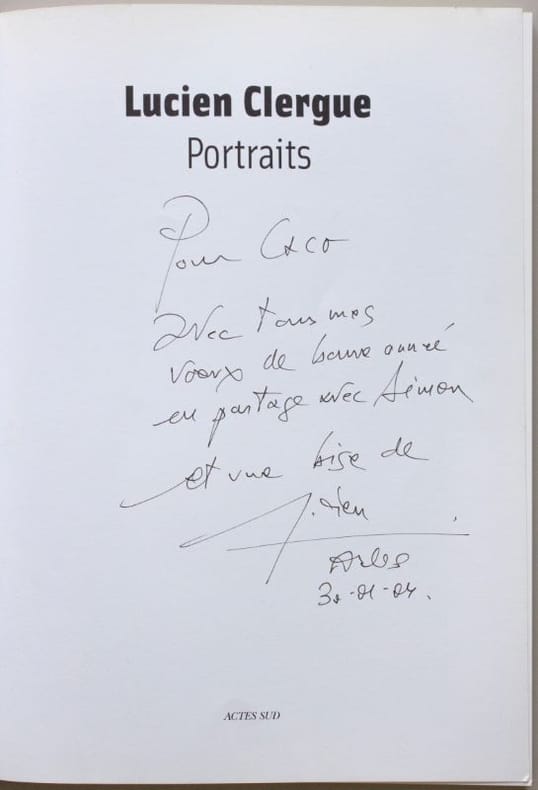 Lucien Clergue
Portraits
Pour Caco
avec tous mes
voeux de bonne année
en partage avec Simon
et une bise de
Lucien
Arles
-01-04.
ACTES SUD